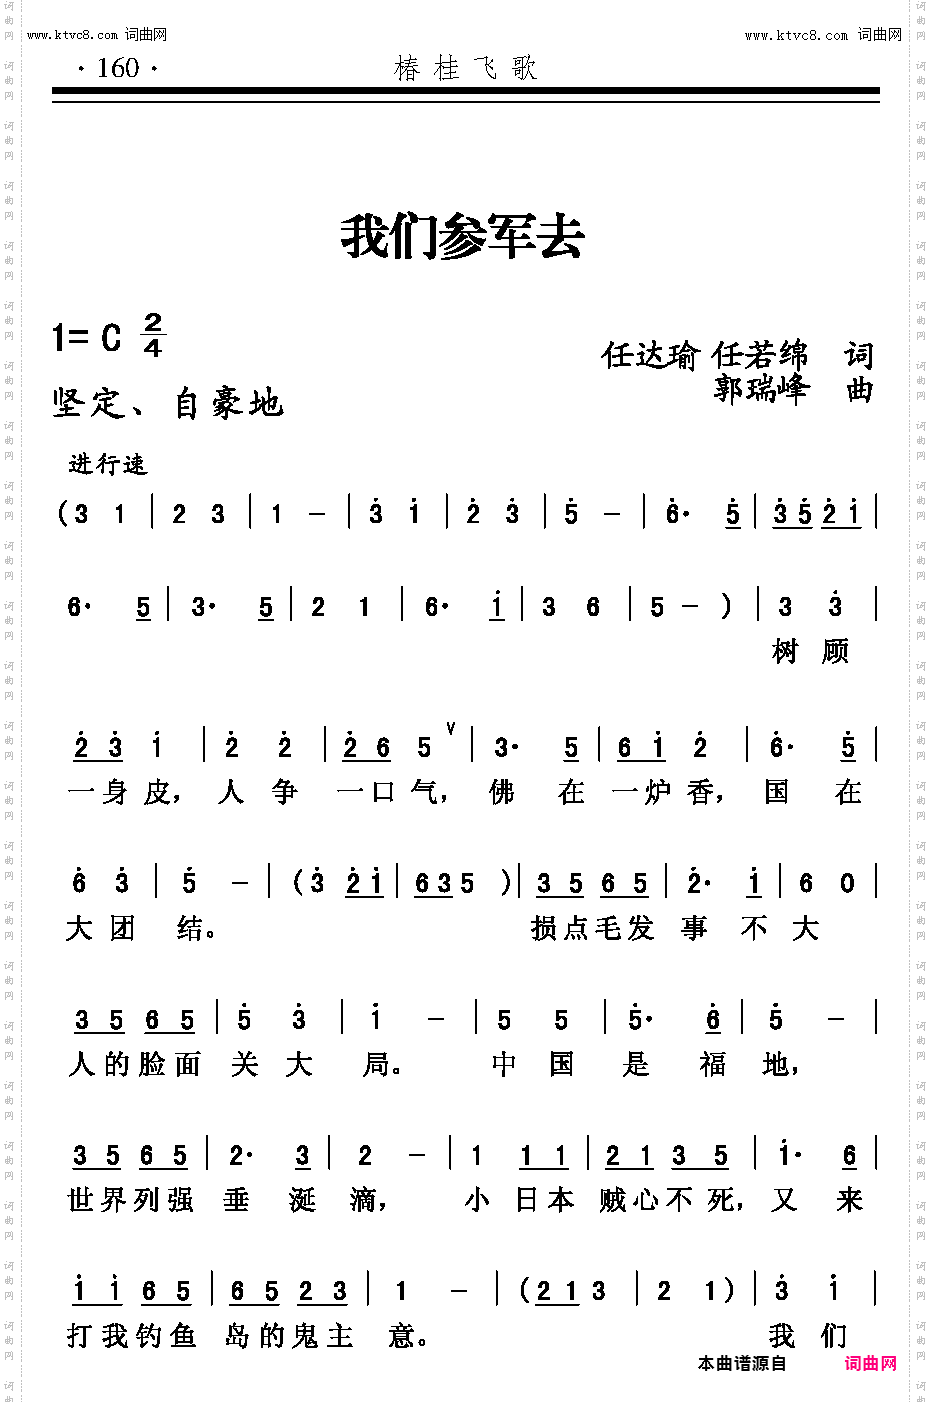 www.ktvc8.com 词曲网 www.ktvc8.com 词曲网
·160· 椿桂飞歌
我们参军去
1= C 2/4
任达瑜 任若绵 词
郭瑞峰 曲
坚定、自豪地
进行速
(3 1 | 2 3 | 1 － | 3̇ i̇ | 2̇ 3̇ | 5̇ － | 6̇· 5̇ | 3̇ 5̇ 2̇ i̇ |
6· 5 | 3· 5 | 2 1 | 6· i̇ | 3 6 | 5 － ) | 3 3̇ |
树 顾
2̇ 3̇ i̇ | 2̇ 2̇ | 2̇ 6 5 ∨ | 3· 5 | 6 i̇ 2̇ | 6̇· 5̇ |
一身皮， 人 争 一口气， 佛 在 一炉香， 国 在
6̇ 3̇ | 5̇ － | (3̇ 2̇ i̇ | 6 3 5 ) | 3 5 6 5 | 2̇· i̇ | 6 0 |
大 团 结。 损点毛发 事 不 大
3 5 6 5 | 5̇ 3̇ | i̇ － | 5 5 | 5̇· 6̇ | 5̇ － |
人的脸面 关 大 局。 中 国 是 福 地，
3 5 6 5 | 2· 3 | 2 － | 1 1 1 | 2 1 3 5 | i̇· 6 |
世界列强 垂 涎 滴， 小 日本 贼心不死， 又 来
i̇ i̇ 6 5 | 6 5 2 3 | 1 － | (2 1 3 | 2 1 ) | 3̇ i̇ |
打我钓鱼 岛的鬼主 意。 我 们
本曲谱源自 词曲网